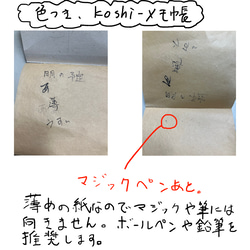 色つき、koshi-メモ帳
マジックペンあと。
薄めの紙なのでマジックや筆には
向きません。ボールペンや鉛筆を
推奨します。